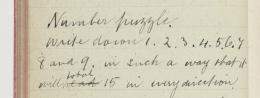 Number puzzle.
Write down 1. 2. 3. 4. 5. 6. 7
8 and 9. in such a way that it
will total 15 in every direction